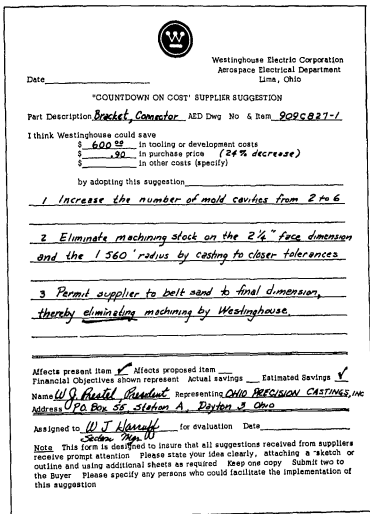 Westinghouse Electric Corporation
Aerospace Electrical Department
Lima, Ohio
Date
"COUNTDOWN ON COST' SUPPLIER SUGGESTION
Part Description Bracket, Connector AED Dwg No & Item 909C827-1
I think Westinghouse could save
$ 600 00 in tooling or development costs
$ .90 in purchase price (24% decrease)
$ in other costs (specify)
by adopting this suggestion
1 Increase the number of mold cavities from 2 to 6
2 Eliminate machining stock on the 2¼" face dimension
and the 1 560 ' radius by casting to closer tolerances
3 Permit supplier to belt sand to final dimension,
thereby eliminating machining by Westinghouse.
Affects present item ✓ Affects proposed item
Financial Objectives shown represent Actual savings Estimated Savings ✓
Name W J Prestel, President Representing OHIO PRECISION CASTINGS, INC
Address P.O. Box 55, Station A, Dayton 3 Ohio
Assigned to W J Harruff for evaluation Date
Section Mgr.
Note This form is designed to insure that all suggestions received from suppliers
receive prompt attention Please state your idea clearly, attaching a sketch or
outline and using additional sheets as required Keep one copy Submit two to
the Buyer Please specify any persons who could facilitate the implementation of
this suggestion